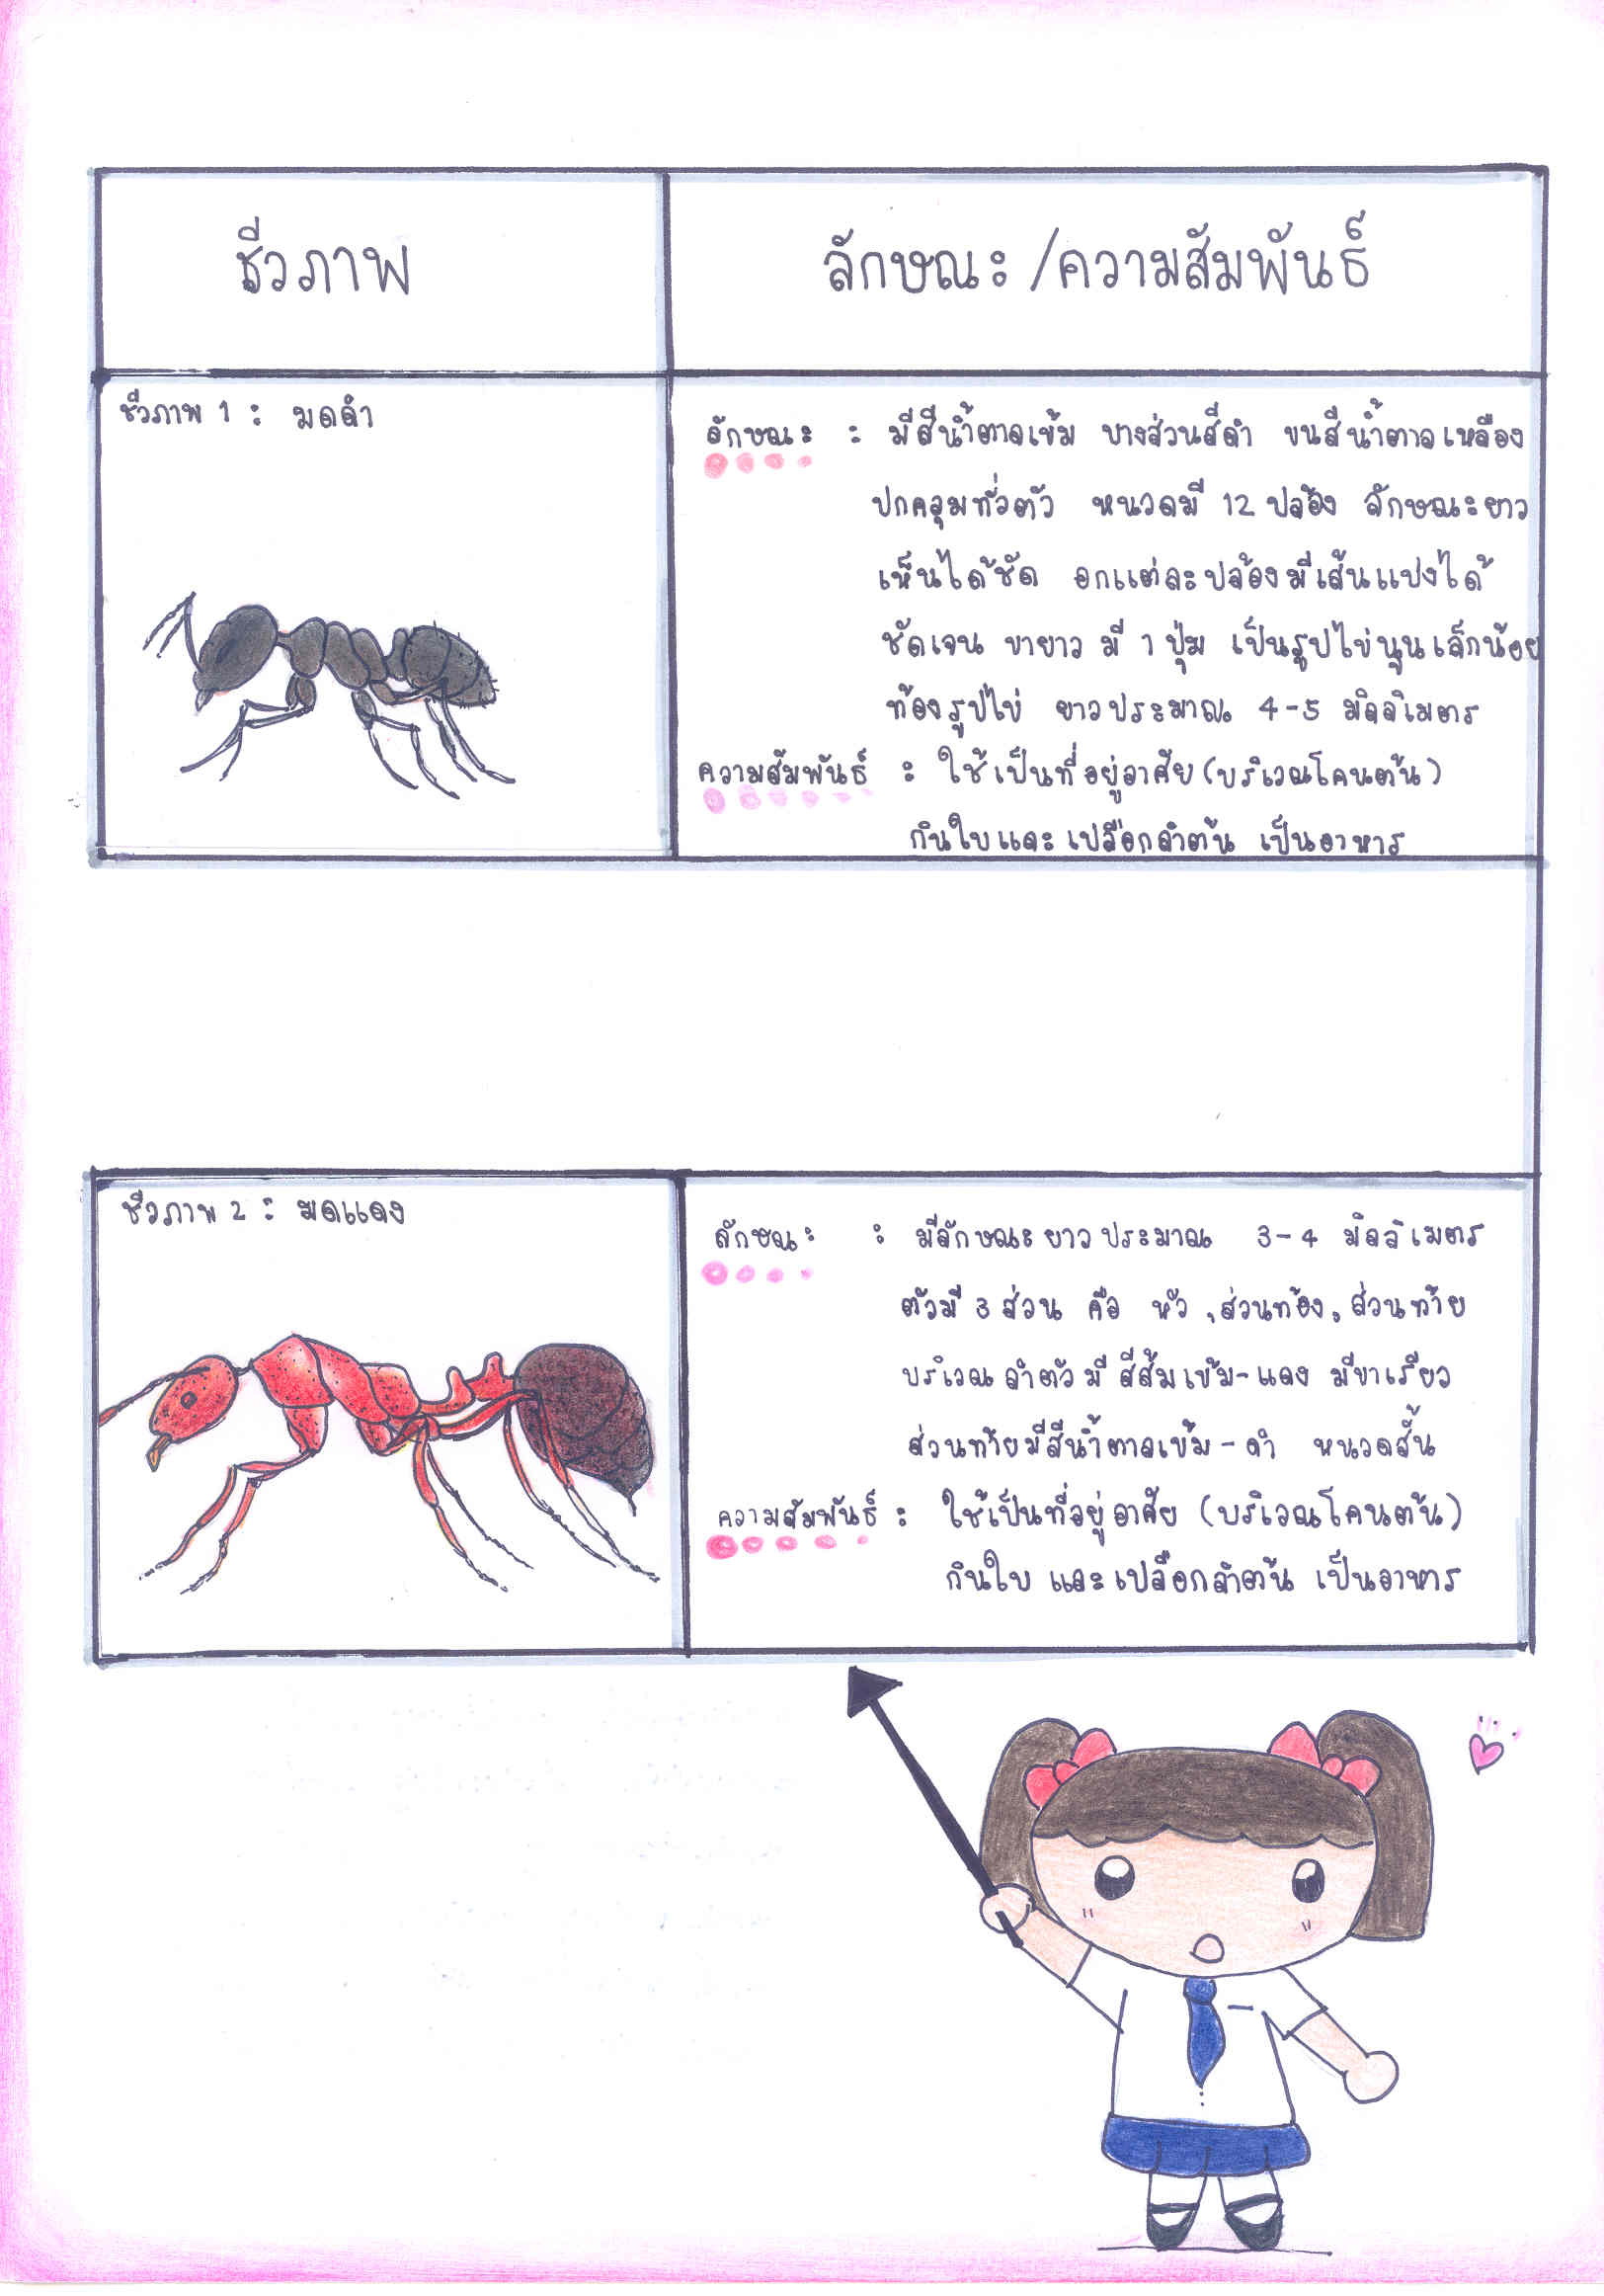 ชีวภาพ
ลักษณะ/ความสัมพันธ์
ชีวภาพ 1 : มดดำ
ลักษณะ : มีสีน้ำตาลเข้ม บางส่วนสีดำ ขนสีน้ำตาลเหลือง
ปกคลุมทั่วตัว หนวดมี 12 ปล้อง ลักษณะยาว
เห็นได้ชัด อกแต่ละปล้องมีเส้นแบ่งได้
ชัดเจน ขายาว มี 1 ปุ่ม เป็นรูปไข่นูนเล็กน้อย
ท้องรูปไข่ ยาวประมาณ 4-5 มิลลิเมตร
ความสัมพันธ์ : ใช้เป็นที่อยู่อาศัย (บริเวณโคนต้น)
กินใบและเปลือกลำต้น เป็นอาหาร
ชีวภาพ 2 : มดแดง
ลักษณะ : มีลักษณะยาวประมาณ 3-4 มิลลิเมตร
ตัวมี 3 ส่วน คือ หัว, ส่วนท้อง, ส่วนท้าย
บริเวณลำตัวมี สีส้มเข้ม-แดง มีขาเรียว
ส่วนท้ายมีสีน้ำตาลเข้ม-ดำ หนวดสั้น
ความสัมพันธ์ : ใช้เป็นที่อยู่อาศัย (บริเวณโคนต้น)
กินใบ และเปลือกลำต้น เป็นอาหาร